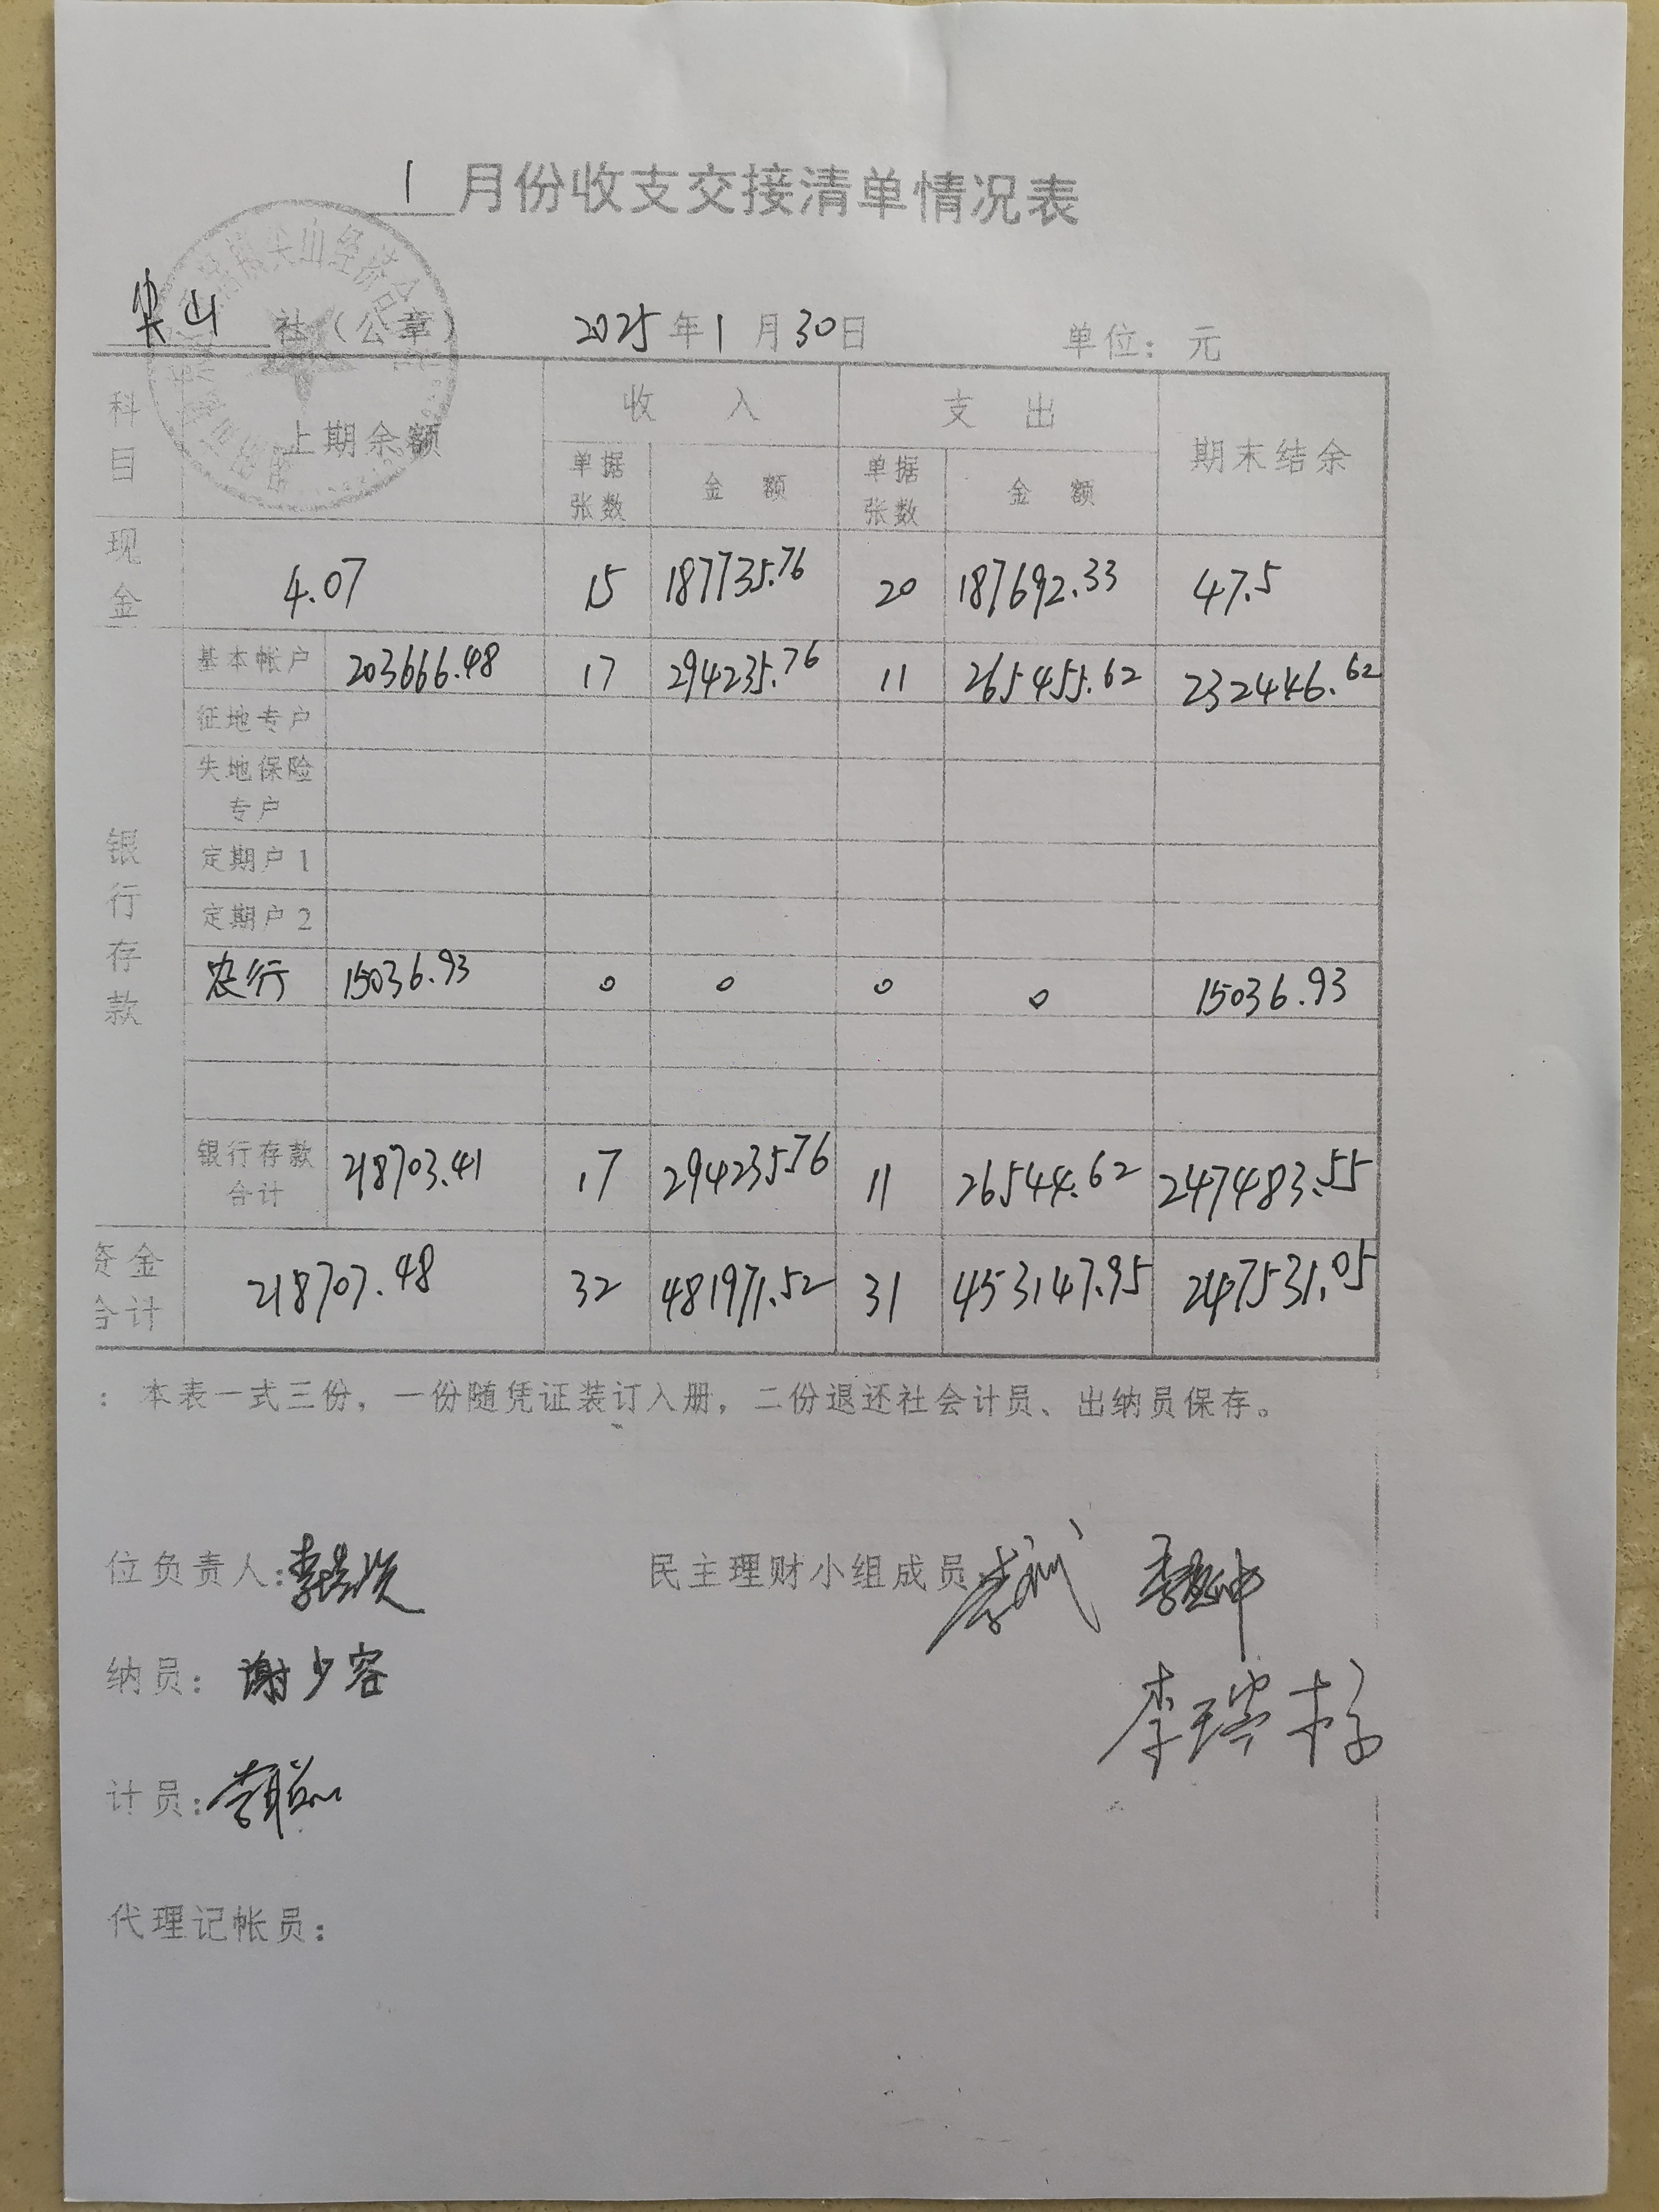 1 月份收支交接清单情况表
尖山 社（公章） 2025年1月30日 单位：元
科目 上期余额 收入 支出 期末结余
单据张数 金额 单据张数 金额
现金 4.07 15 187735.76 20 187692.33 47.5
银行存款
基本帐户 203666.48 17 294235.76 11 265455.62 232446.62
征地专户
失地保险专户
定期户1
定期户2
农行 15036.93 0 0 0 0 15036.93
银行存款合计 218703.41 17 294235.76 11 26544.62 247483.55
资金合计 218707.48 32 481971.52 31 453147.95 247531.05
：本表一式三份，一份随凭证装订入册，二份退还社会计员、出纳员保存。
位负责人： 民主理财小组成员
纳员：谢少容
计员：
代理记帐员：